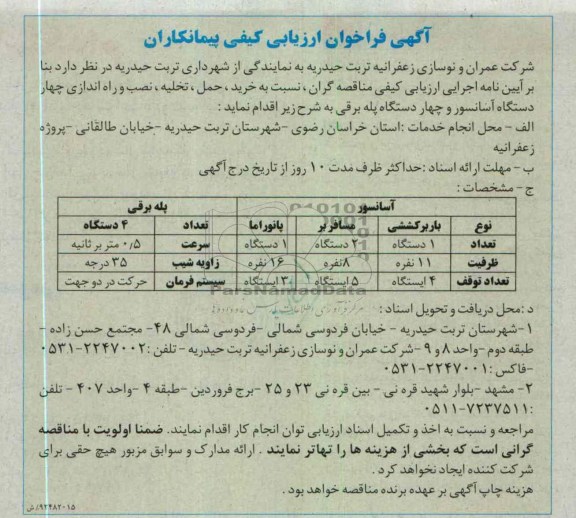 آگهی فراخوان ارزیابی کیفی پیمانکاران
شرکت عمران و نوسازی زعفرانیه تربت حیدریه به نمایندگی از شهرداری تربت حیدریه در نظر دارد بنا
بر آیین نامه اجرایی ارزیابی کیفی مناقصه گران ، نسبت به خرید ، حمل ، تخلیه ، نصب و راه اندازی چهار
دستگاه آسانسور و چهار دستگاه پله برقی به شرح زیر اقدام نماید :
الف - محل انجام خدمات :استان خراسان رضوی -شهرستان تربت حیدریه -خیابان طالقانی -پروژه
زعفرانیه
ب- مهلت ارائه اسناد :حداکثر ظرف مدت ۱۰ روز از تاریخ درج آگهی
ج- مشخصات :
آسانسور پله برقی
نوع باربرکششی مسافربر پانوراما تعداد ۴ دستگاه
تعداد ۱ دستگاه ۲ دستگاه ۱ دستگاه سرعت ۰/۵ متر بر ثانیه
ظرفیت ۱۱ نفره ۸نفره ۱۶ نفره زاویه شیب ۳۵ درجه
تعداد توقف ۴ ایستگاه ۵ ایستگاه ۳ ایستگاه سیستم فرمان حرکت در دو جهت
ParsNamadData
د :محل دریافت و تحویل اسناد :
۱-شهرستان تربت حیدریه - خیابان فردوسی شمالی -فردوسی شمالی ۴۸- مجتمع حسن زاده -
طبقه دوم -واحد ۸ و ۹ -شرکت عمران و نوسازی زعفرانیه تربت حیدریه - تلفن :۲۲۴۷۰۰۲-۰۵۳۱
-فاکس :۲۲۴۷۰۰۱-۰۵۳۱
۲- مشهد -بلوار شهید قره نی - بین قره نی ۲۳ و ۲۵ -برج فروردین -طبقه ۴ -واحد ۴۰۷ - تلفن
:۷۲۳۷۵۱۱-۰۵۱۱
مراجعه و نسبت به اخذ و تکمیل اسناد ارزیابی توان انجام کار اقدام نمایند. ضمنا اولویت با مناقصه
گرانی است که بخشی از هزینه ها را تهاتر نمایند . ارائه مدارک و سوابق مزبور هیچ حقی برای
شرکت کننده ایجاد نخواهد کرد .
هزینه چاپ آگهی بر عهده برنده مناقصه خواهد بود .
۹۲۴۸۲۰۱۵/ش